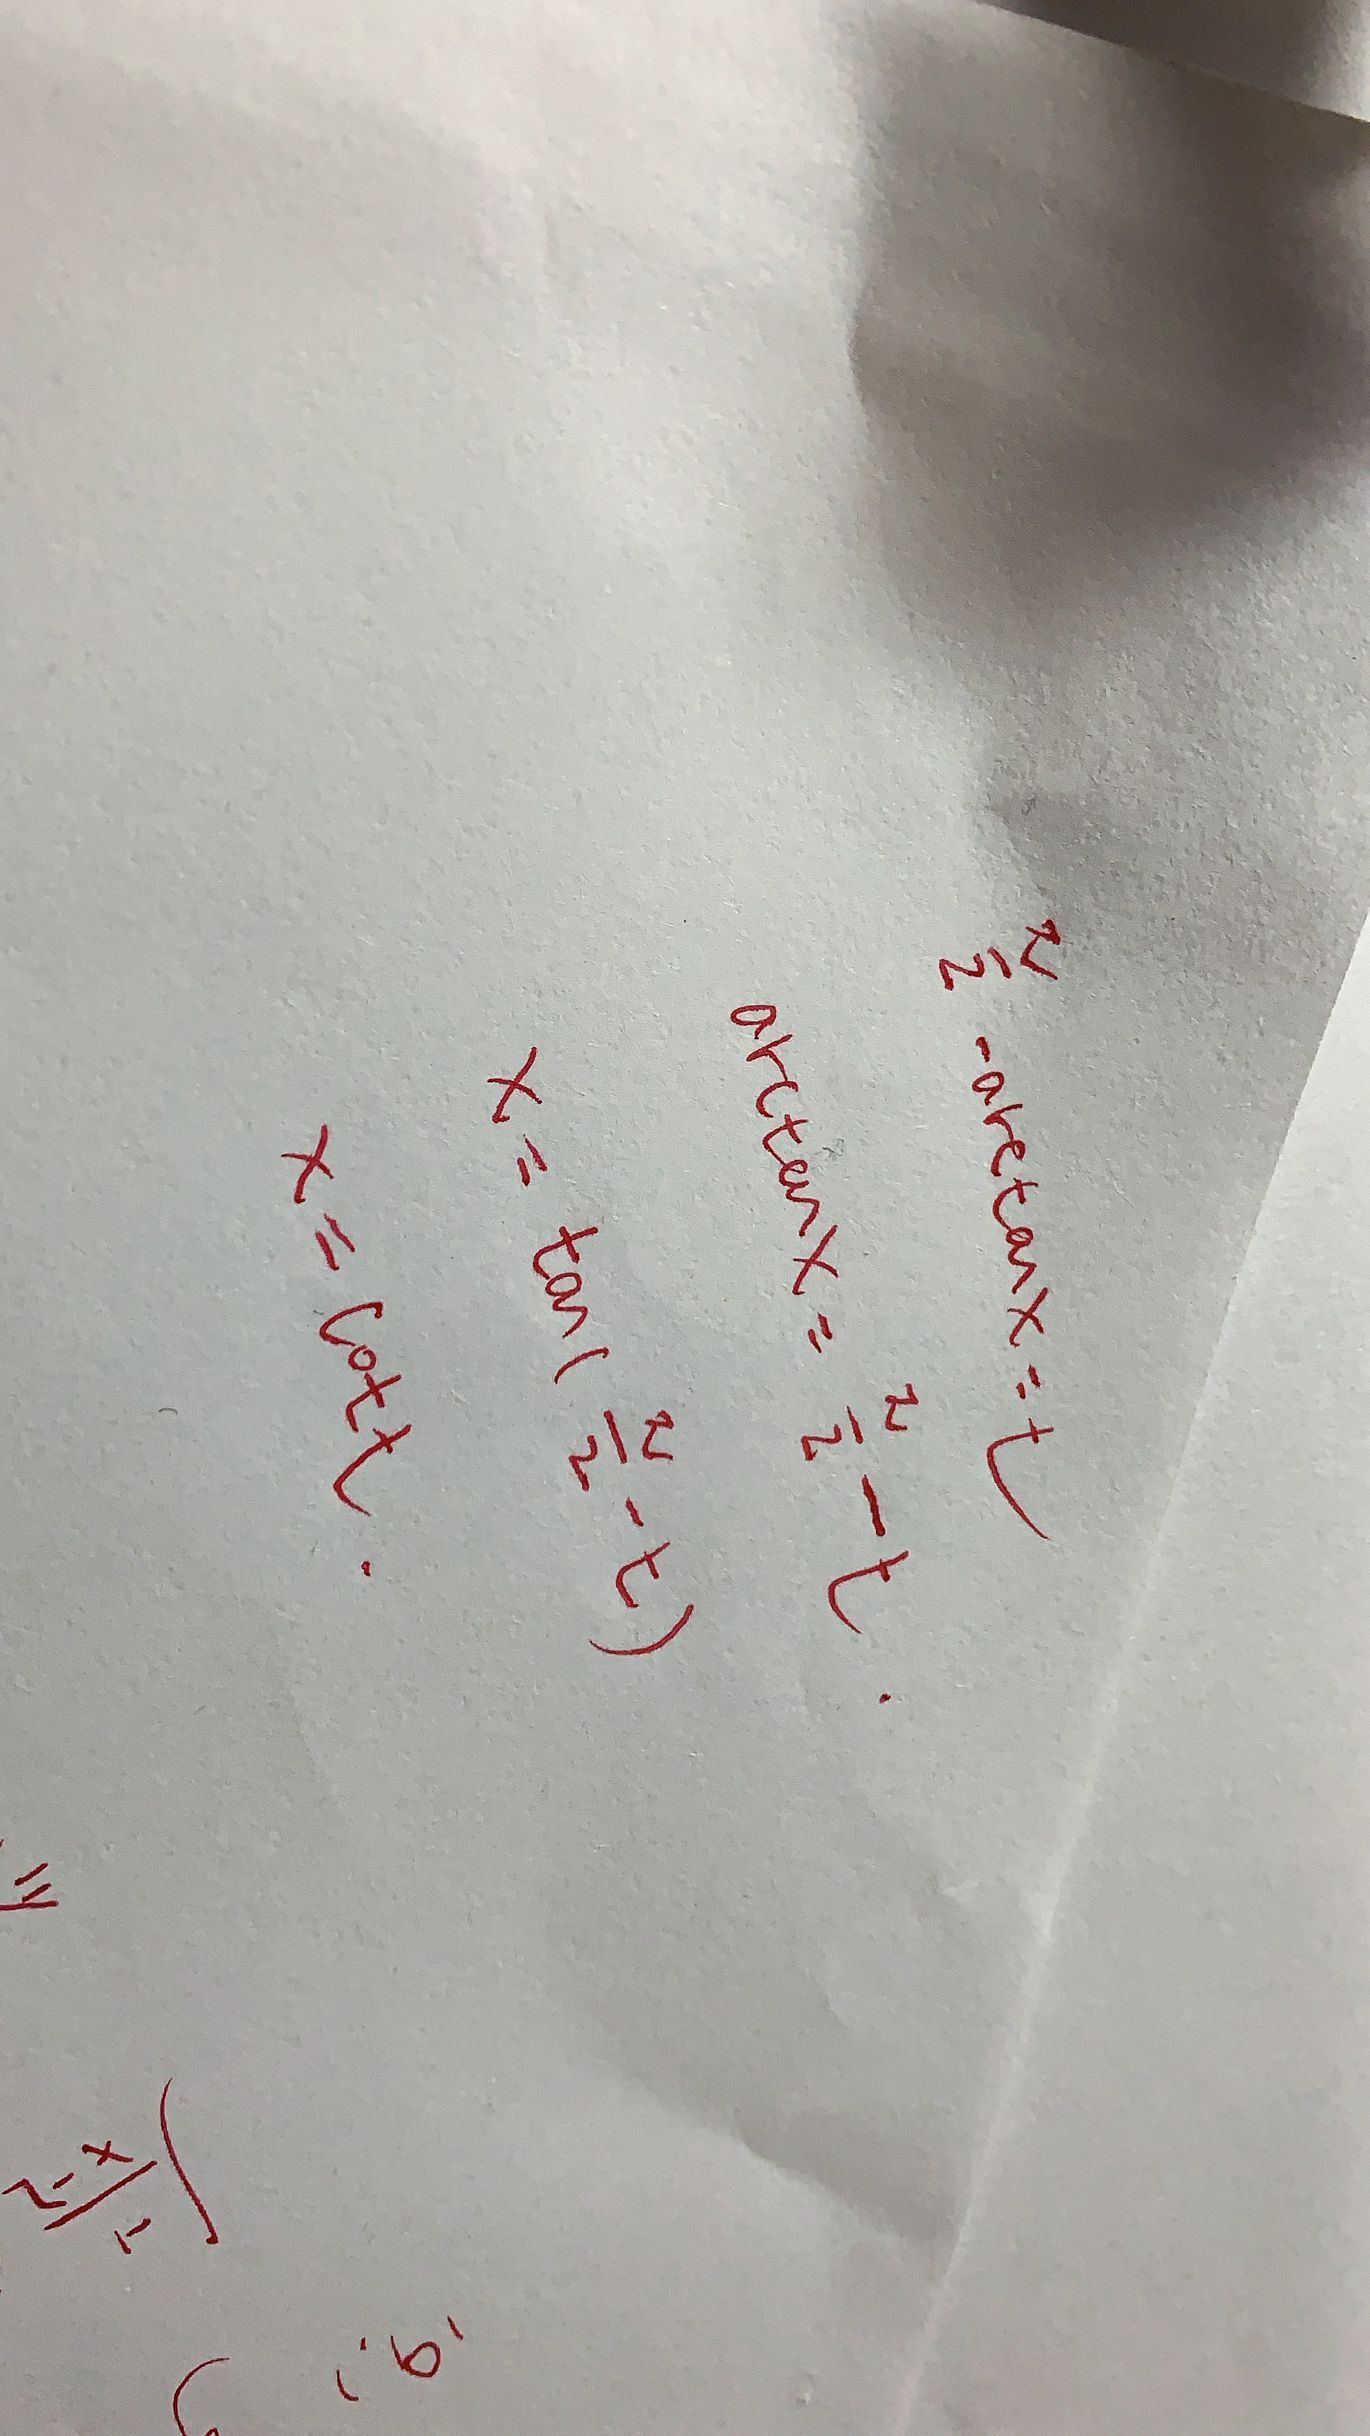 π/2 - arctanx = t
arctanx = π/2 - t.
x = tan(π/2 - t)
x = cott.